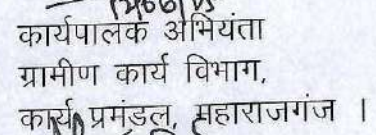 कार्यपालक अभियंता
ग्रामीण कार्य विभाग,
कार्य प्रमंडल, महाराजगंज ।